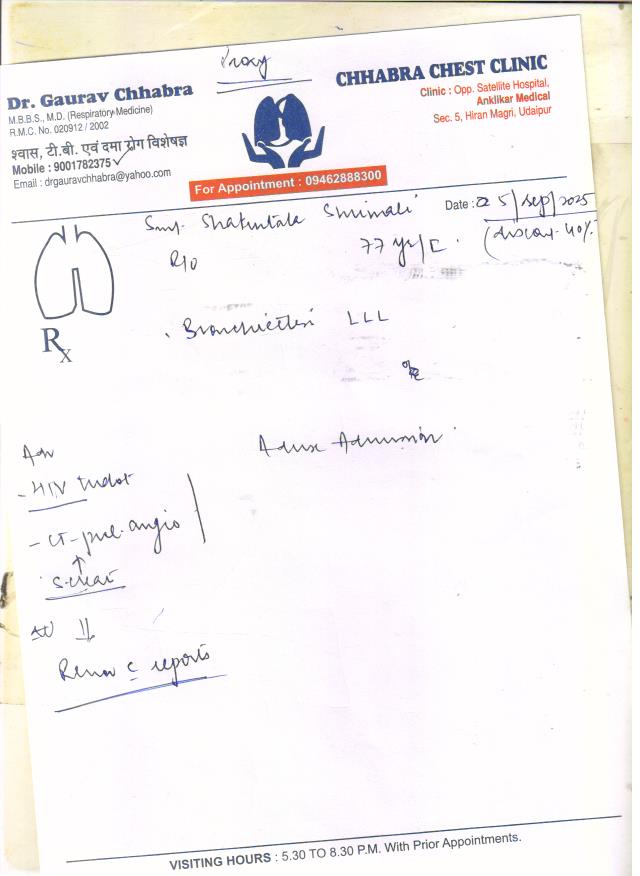 Proxy
Dr. Gaurav Chhabra
M.B.B.S., M.D. (Respiratory Medicine)
R.M.C. No. 020912 / 2002
श्वास, टी.बी. एवं दमा रोग विशेषज्ञ
Mobile : 9001782375
Email : drgauravchhabra@yahoo.com
CHHABRA CHEST CLINIC
Clinic : Opp. Satellite Hospital,
Anklikar Medical
Sec. 5, Hiran Magri, Udaipur
For Appointment : 09462888300
Smt. Shakuntala Shrimali
Date : 5/sep/2025
R/o
77 yr/F.
40%
Rx
LLL
Advise Admission
Adv
- HIV
- CT-pul. angio
↑
S. creat
Review c reports
VISITING HOURS : 5.30 TO 8.30 P.M. With Prior Appointments.